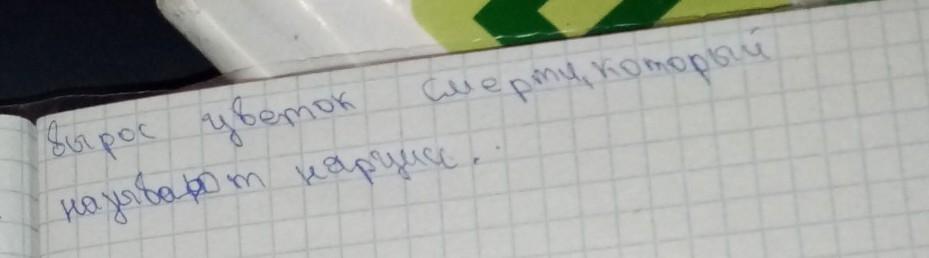 вырос цветок смерти, который
называют нарцисс.